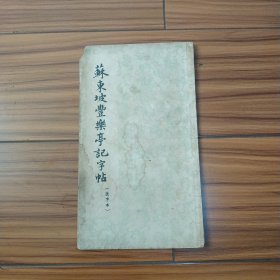 蘇東坡豐樂亭記字帖